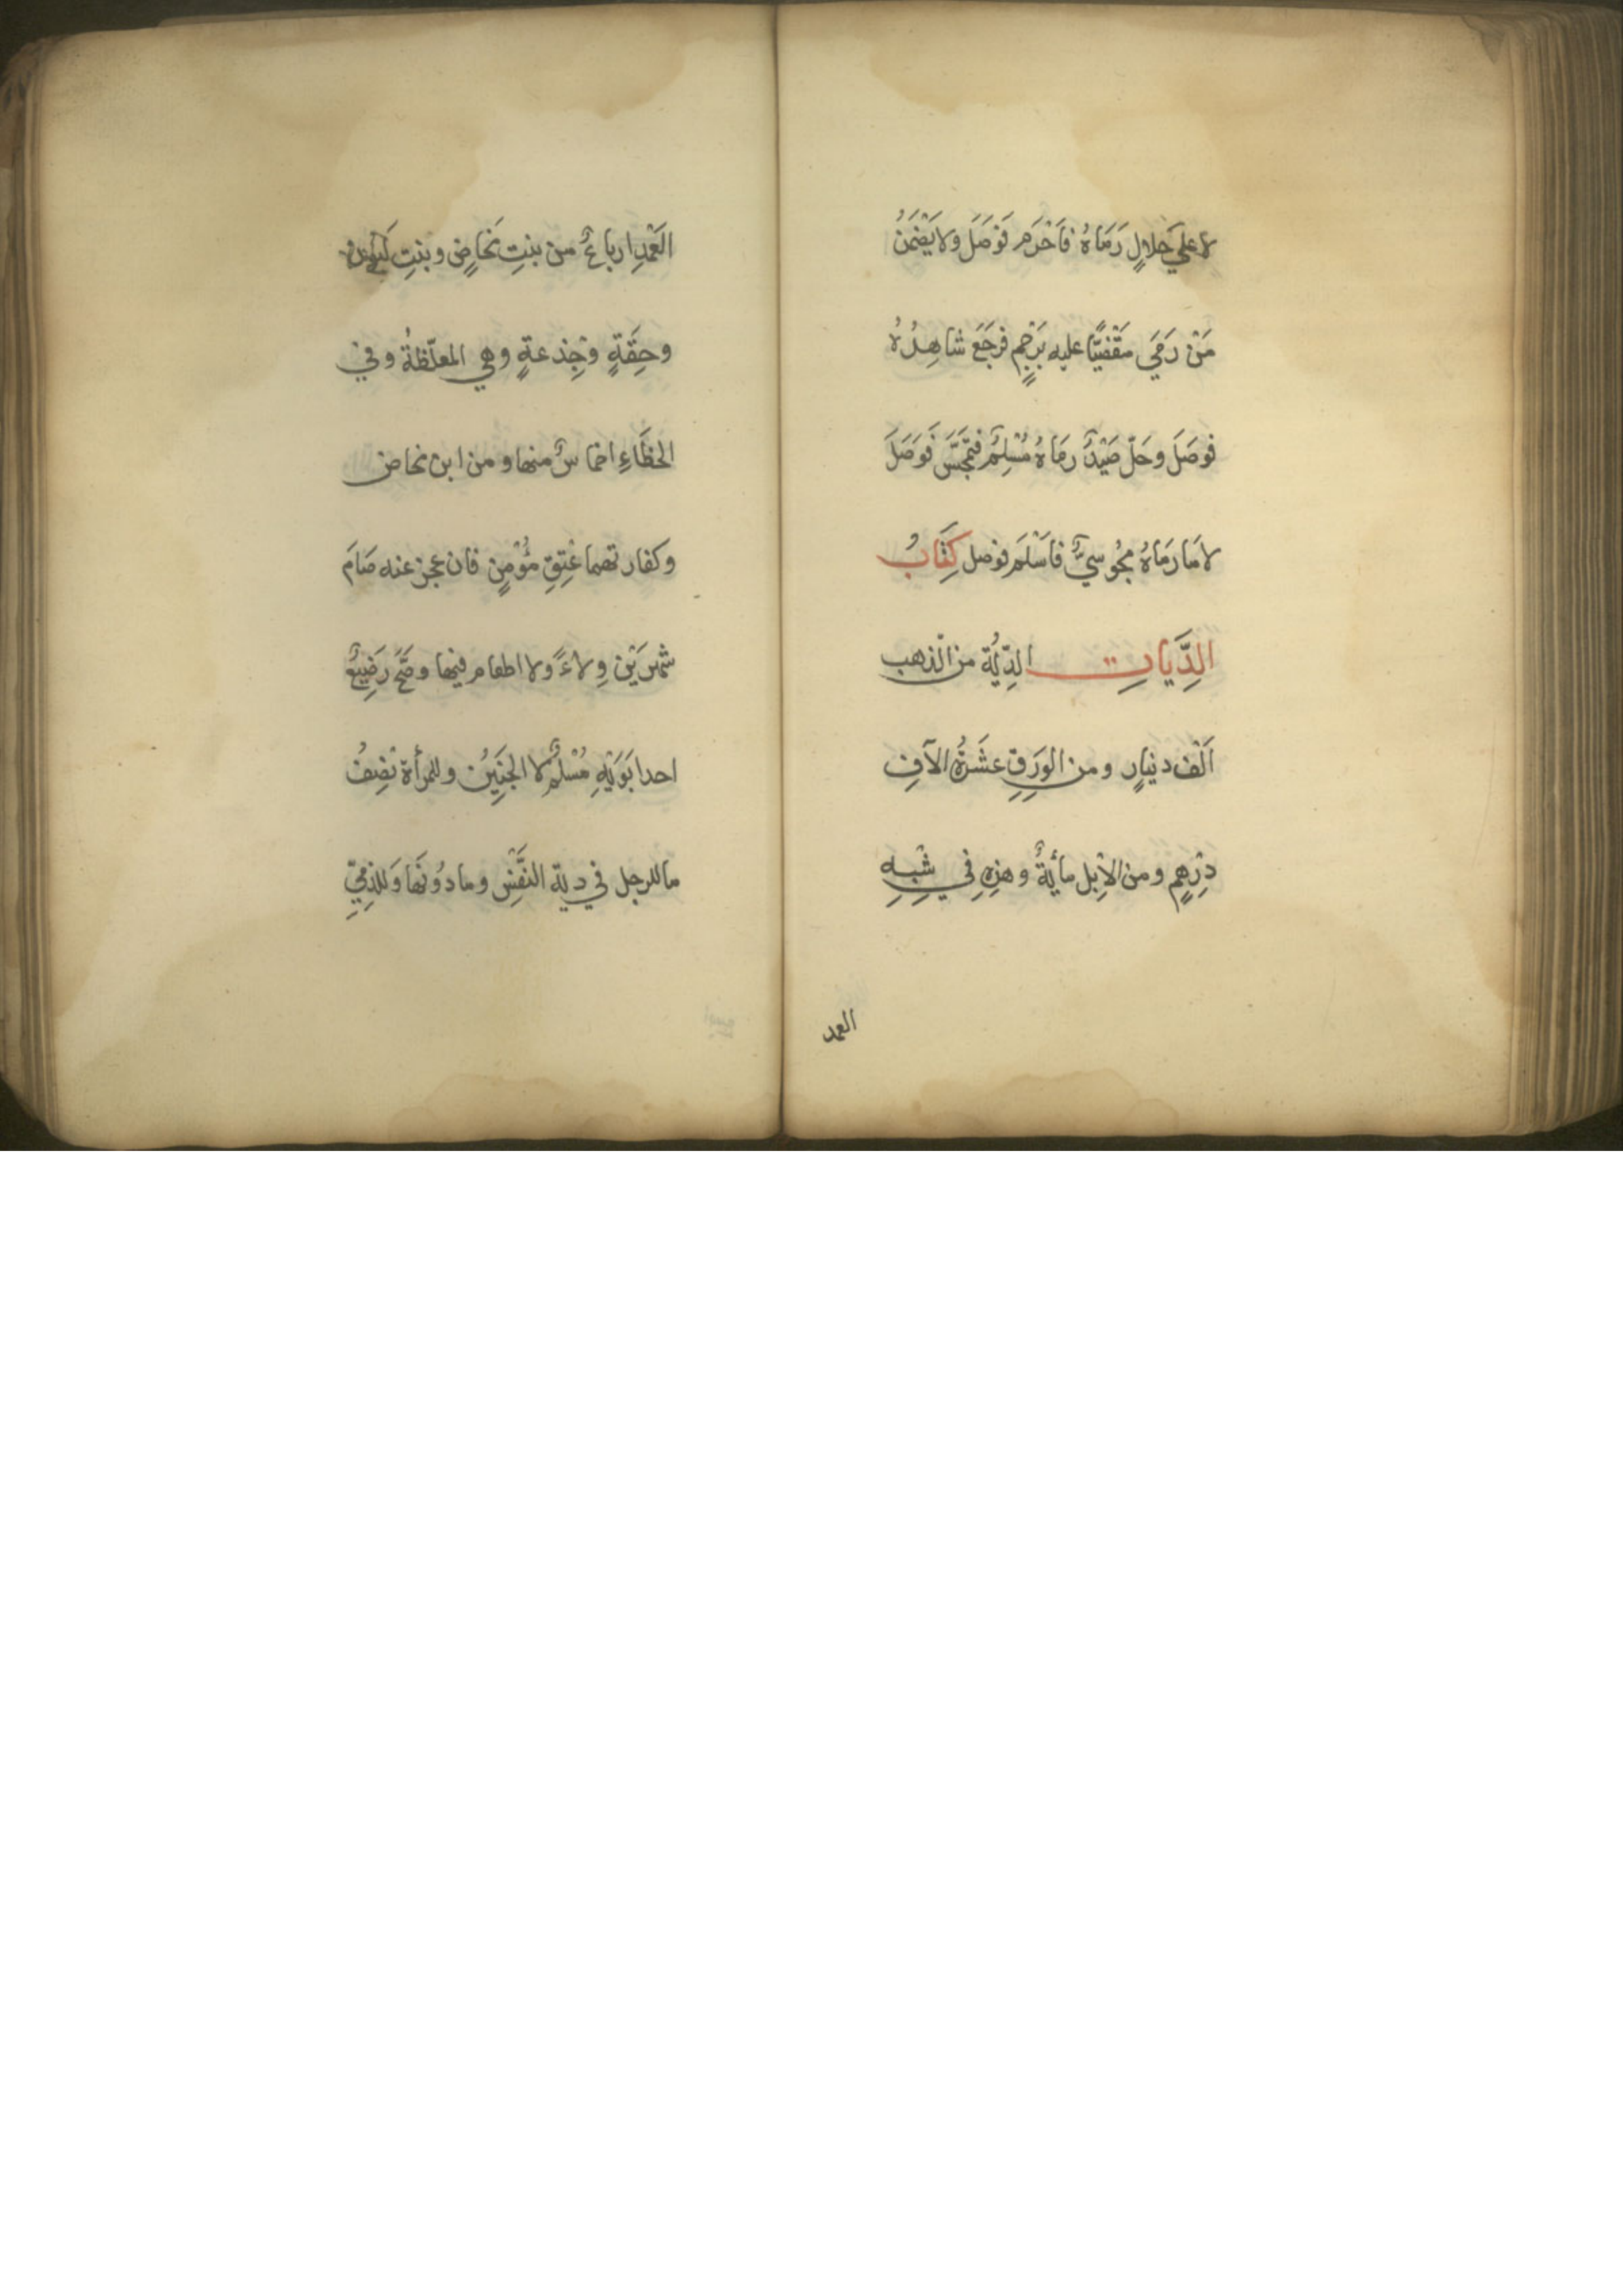 لا علي حَلالٍ رَمَاهُ فاَحْرَم فَوَصَلَ ولا يَضْمَنُ
مَنْ رَمَي مَقْضيًّا عليه بَرَجْمٍ فرَجَعَ شاهِدُهُ
فوصَلَ وحَلّ صَيْدٌ رمَاهُ مُسْلِمٌ فتمَجَّسَ فَوَصَلَ
لا مَا رَمَاهُ مجُوسيٌّ فاَسْلَمَ فوصل كِتَابُ
الدِّيَاتِ الدِّيَةُ من الذهب
اَلْف دنيارٍ ومن الوَرِقِ عشَرَةُ الآفِ
دِرْهمٍ ومن الاِبل مأيةٌ وهذِهِ فِي شْبِهِ
العمد
العَمْدِ ارباعٌ من بنتِ مَخَاضٍ وبنتِ لَبُونٍ
وحِقَّةٍ وجِذعةٍ وهي المعلّظةُ وفي
الخطَاءِ اخماسٌ منها ومن ابن مخاض
وكفارتهما عْتِقِ مُؤْمِنٍ فان عجز عنه صَامَ
شهرَيْن وِلاءً ولا اطعام فيها وصَحَّ رَضِيعٌ
احدا بَوَيْهِ مُسْلِمٌ لا الجَنِيْنُ وللمرأة نصِفُ
ما للرجل في دية النفْسِ وما دُونَهَا وَللذِمِّيِّ